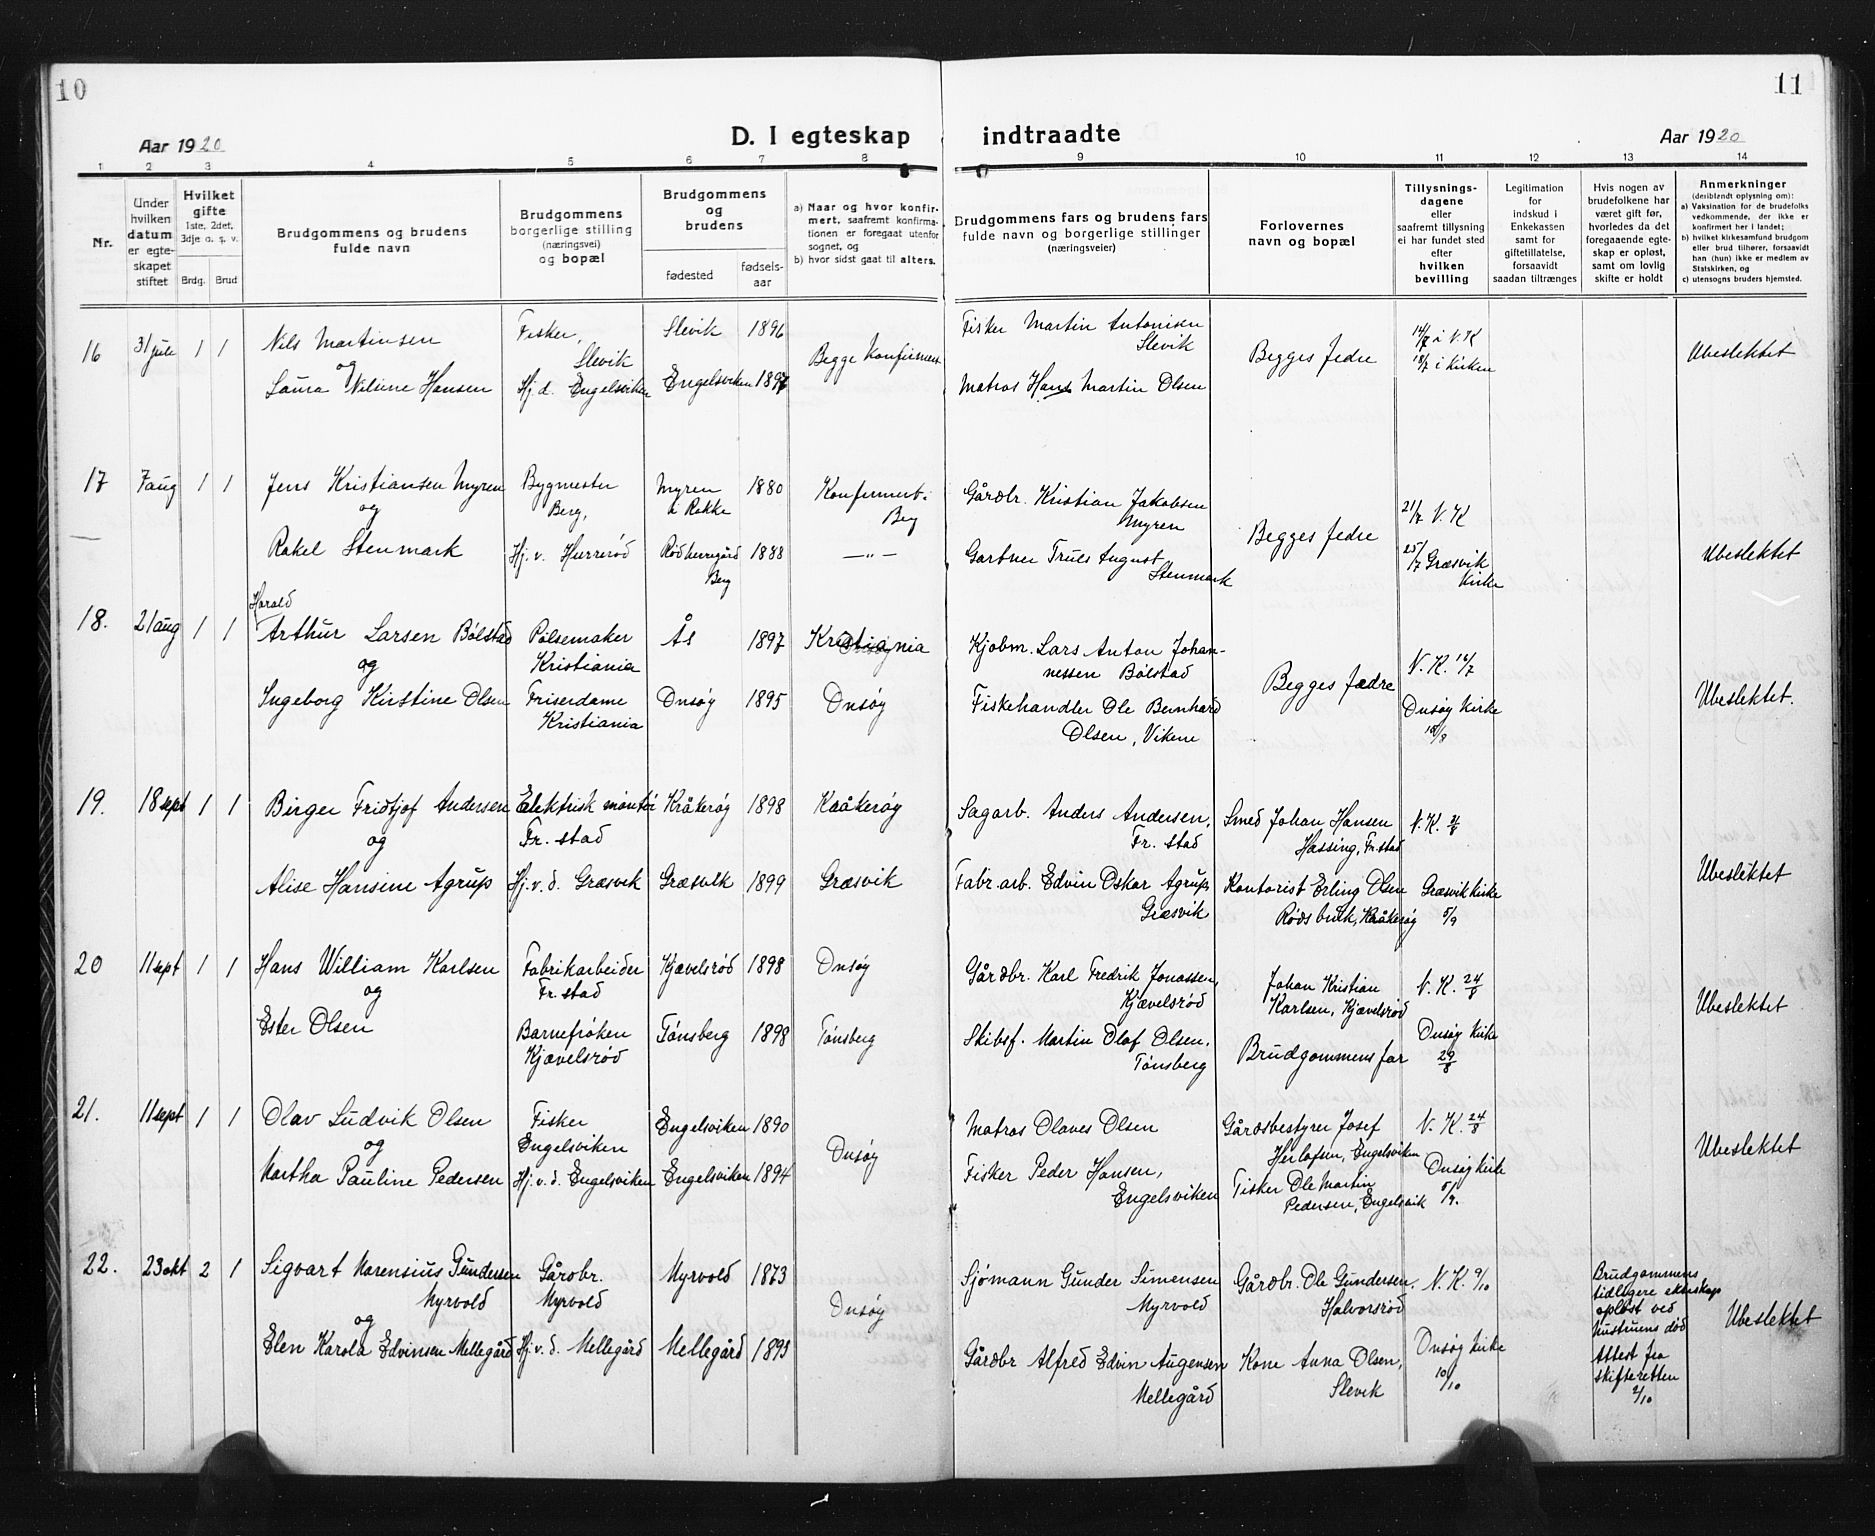 10
11
Aar 1920
D. I egteskap indtraadte
Aar 1920
1 2 3 4 5 6 7 8 9 10 11 12 13 14
Nr.
Under hvilken datum er egteskapet stiftet
Hvilket gifte
1ste, 2det, 3dje o. s. v.
Brdg. Brud
Brudgommens og brudens fulde navn
Brudgommens borgerlige stilling (næringsvei) og bopæl
Brudgommens og brudens
fødested
fødselsaar
a) Naar og hvor konfirmert, saafremt konfirmationen er foregaat utenfor sognet, og
b) hvor sidst gaat til alters.
Brudgommens fars og brudens fars fulde navn og borgerlige stillinger (næringsveier)
Forlovernes navn og bopæl
Tillysningsdagene eller saafremt tillysning ei har fundet sted efter hvilken bevilling
Legitimation for indskud i Enkekassen samt for giftetillatelse, forsaavidt saadan tiltrænges
Hvis nogen av brudefolkene har været gift før, hvorledes da det foregaaende egteskap er opløst, samt om lovlig skifte er holdt
Anmerkninger (deriblendt oplysning om):
a) Vaksination for de brudefolks vedkommende, der ikke er konfirmert her i landet;
b) hvilket kirkesamfund brudgom eller brud tilhører, forsaavidt han (hun) ikke er medlem av Statskirken, og
c) utensogns bruders hjemsted.
16 31 juli 1 1 Nils Martinsen Fisker, Slevik Slevik 1896 Begge Konfirmert Fisker Martin Antonisen Slevik Begges fedre 14/7 i V. K 18/7 i Kirken Ubeslektet
og
Laura Nilsine Hansen Hj. d. Engelsviken Engelsviken 1897 Matros Hans Martin Olsen
17 7 aug 1 1 Jens Kristiansen Myren Bygmester Berg, Myren i Rokke 1880 Konfirmert i Berg Gårdbr. Kristian Jakobsen Myren Begges fedre 21/7 V. K
og
Rakel Stenmark Hj. v. Hurrerød Rødherregård Berg 1888 —"— Gartner Truls August Stenmark 25/7 Græsvik Kirke Ubeslektet
18. 21 aug 1 1 Harald Arthur Larsen Bølstad Pølsemaker Kristiania Ås 1897 Kristiania Kjøbm. Lars Anton Johannessen Bølstad Begges fædre V. K. 16/7
og
Ingeborg Kirstine Olsen Friserdame Kristiania Onsøy 1895 Onsøy Fiskehandler Ole Bernhard Olsen, Vikene Onsøy Kirke 18/8 Ubeslektet.
19. 18 sept 1 1 Birger Fridtjof Andersen Elektrisk montør Fr. stad Kråkerøy 1898 Kråkerøy Sagarb. Anders Andersen, Fr. stad Smed Johan Hansen Hassing, Fr. stad V. K.
og
Alise Hansine Agrup Hj. v. d. Græsvik Græsvik 1899 Græsvik Fabr. arb. Edvin Oskar Agrup, Græsvik Kontorist Erling Olsen Røds bruk, Kråkerøy Græsvik Kirke 5/9 Ubeslektet
20 11 sept 1 1 Hans William Karlsen Fabrikarbeider Fr. stad Kjævelsrød 1898 Onsøy Gårdbr. Karl Fredrik Jonassen, Kjævelsrød Johan Kristian Karlsen, Kjævelsrød V. K. 24/8
og
Ester Olsen Barnefrøken Kjævelsrød Tønsberg 1898 Tønsberg Skibsf. Martin Olaf Olsen, Tønsberg Brudgommens far Onsøy Kirke 29/8 Ubeslektet
21. 11 sept 1 1 Olav Ludvik Olsen Fisker Engelsviken Engelsviken 1890 Onsøy Matros Olaves Olsen Gårdsbestyrer Josef Herlofsen, Engelsviken V. K. 24/8
og
Martha Pauline Pedersen Hj. v. d. Engelsviken Engelsviken 1894 Fisker Peder Hansen, Engelsviken Fisker Ole Martin Pedersen, Engelsvik Onsøy Kirke 5/9. Ubeslektet
22. 23 okt 2 1 Sigvart Marensius Gundersen Myrvold Gårdbr. Myrvold Myrvold 1873 Onsøy Sjømann Gunder Simensen Myrvold Gårdbr. Ole Gundersen, Halvorsrød V. K. 9/10 Brudgommens tidligere ekteskap opløst ved hustruens død Attest fra skifteretten 2/10 Ubeslektet
og
Elen Karola Edvinsen Mellegård Hj. v. d. Mellegård Mellegård 1895 Gårdbr Alfred Edvin Augensen Mellegård Kone Anna Olsen, Slevik Onsøy Kirke 10/10